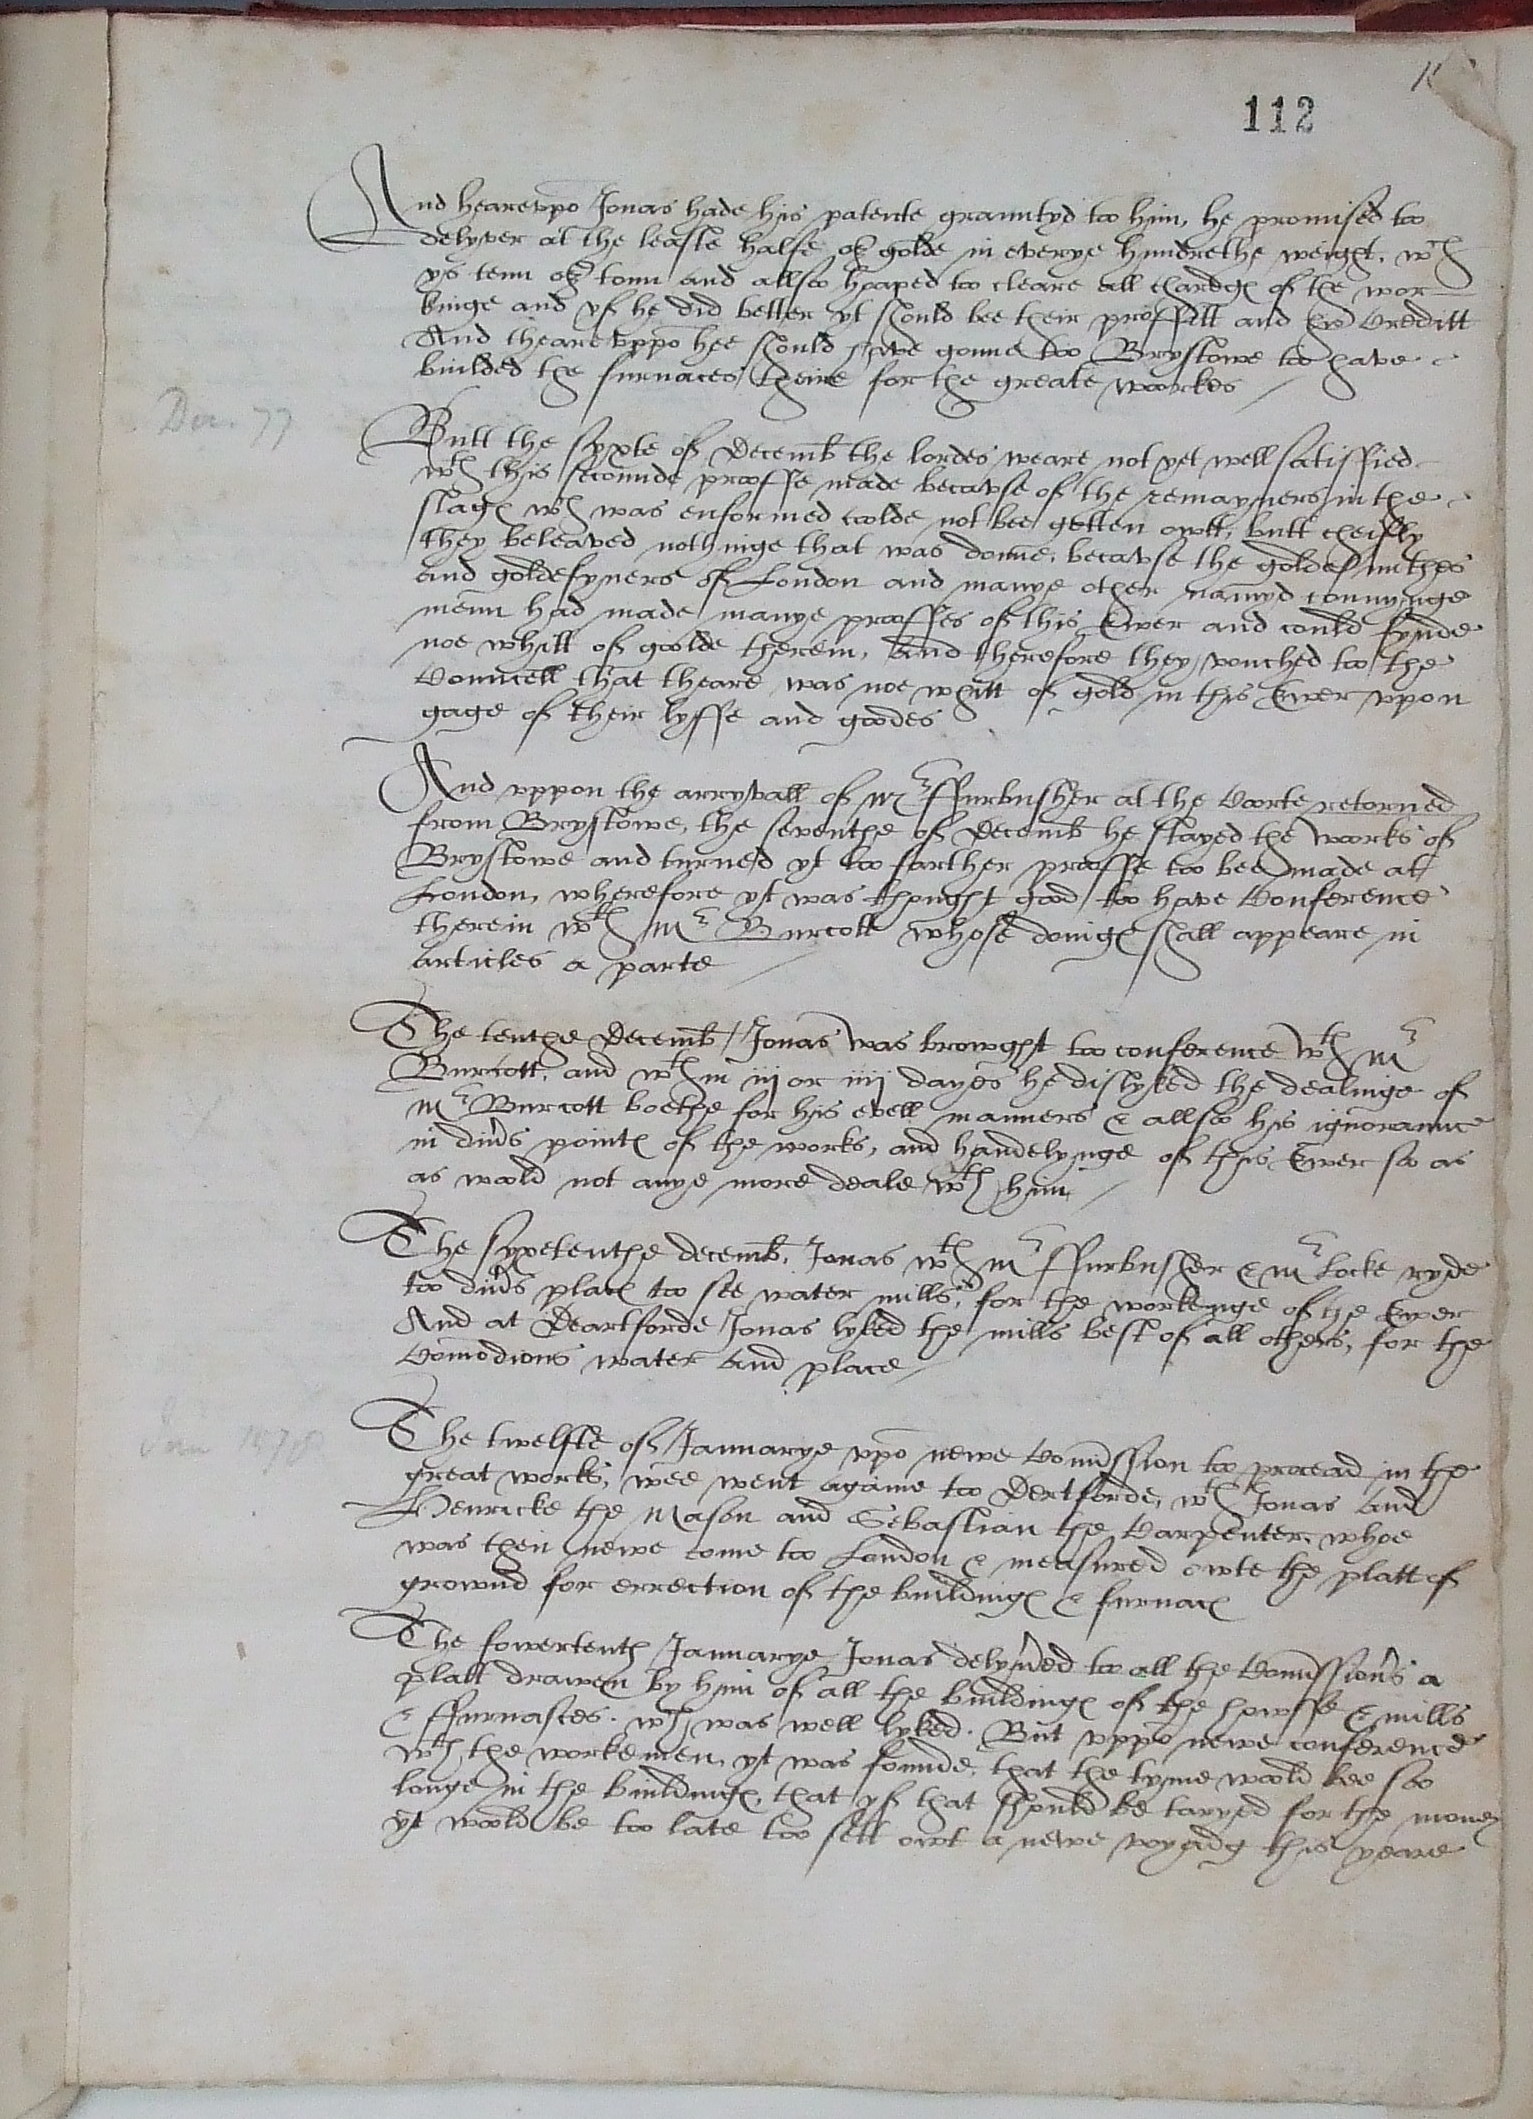 112
And hearevppō Jonas hade his patente grauntyd too him, he promised too
delyver at the leaste halfe oz golde in everye hundrethe weight, wch
ys tenn oz tonn and allso hoaped too cleare all chardgs of the wor-
kinge and yf he did better yt should bee their proffitt and his Creditt
And thearevppō hee should have gonne too Brystowe too have
builded the furnaces theire for the greate workes
Dec. 77
Butt the syxte of Decemb the lordes weare not yet well satisffied
wth this seconnde prooffe made becavse of the remayners in the
slags wch was enformed coolde not bee gotten owtt, butt cheifly
they beleaved nothinge that was donne, becavse the goldesmithes
and goldefyners of London and manye other namyd connynge
menn had made manye prooffes of this Ewer and could fynde
noe whitt of goolde therein, And therefore they vouched too the
Councell that theare was noe whitt of gold in this Ewer vpon
gage of their lyffe and goodes
And vppon the arryvall of mr ffurbusher at the Coorte retorned
from Brystowe, the seventhe of Decemb he stayed the works of
Brystowe and turned yt too farther prooffe too bee made at
London, wherefore yt was thought good too have Conference
therein wth Mr Burcott whose doings shall appeare in
articles a parte
The tenthe Decemb Jonas was browght too conference wth mr
Burcott, and wthin iij or iiij dayes he dislyked the dealinge of
mr Burcott boethe for his evell manners & allso his ignorannce
in divs points of the works, and handelynge of this Ewer so as
as woold not anye more deale wth him
The syxetenthe decemb, Jonas wth mr ffurbusher & mr Locke ryde
too divs places too see water mills, for the workenge of the Ewer
And at Deartforde Jonas lyked the mills best of all others, for the
Comōdious water And place
Jan 1578
The twelfte of Januarye vpō newe Comission too procead in the
great works, wee went againe too Dertforde, wth Jonas And
Henricke the Mason and Sebastian the Carpenter, whoe
was then newe come too London & measured owte the platt of
grownd for errection of the buildings & furnaces
The fowertenth Januarye Jonas delyved too all the Comissions a
platt drawen by him of all the buildings of the howsse & mills
& ffurnasces. wch was well lyked. But vppō newe conference
wth the workemen, yt was founde, that the tyme woold bee soo
longe in the buildings, that yf that should be taryed for the money
yt woold be too late too sett owt a newe voyadg this yeare